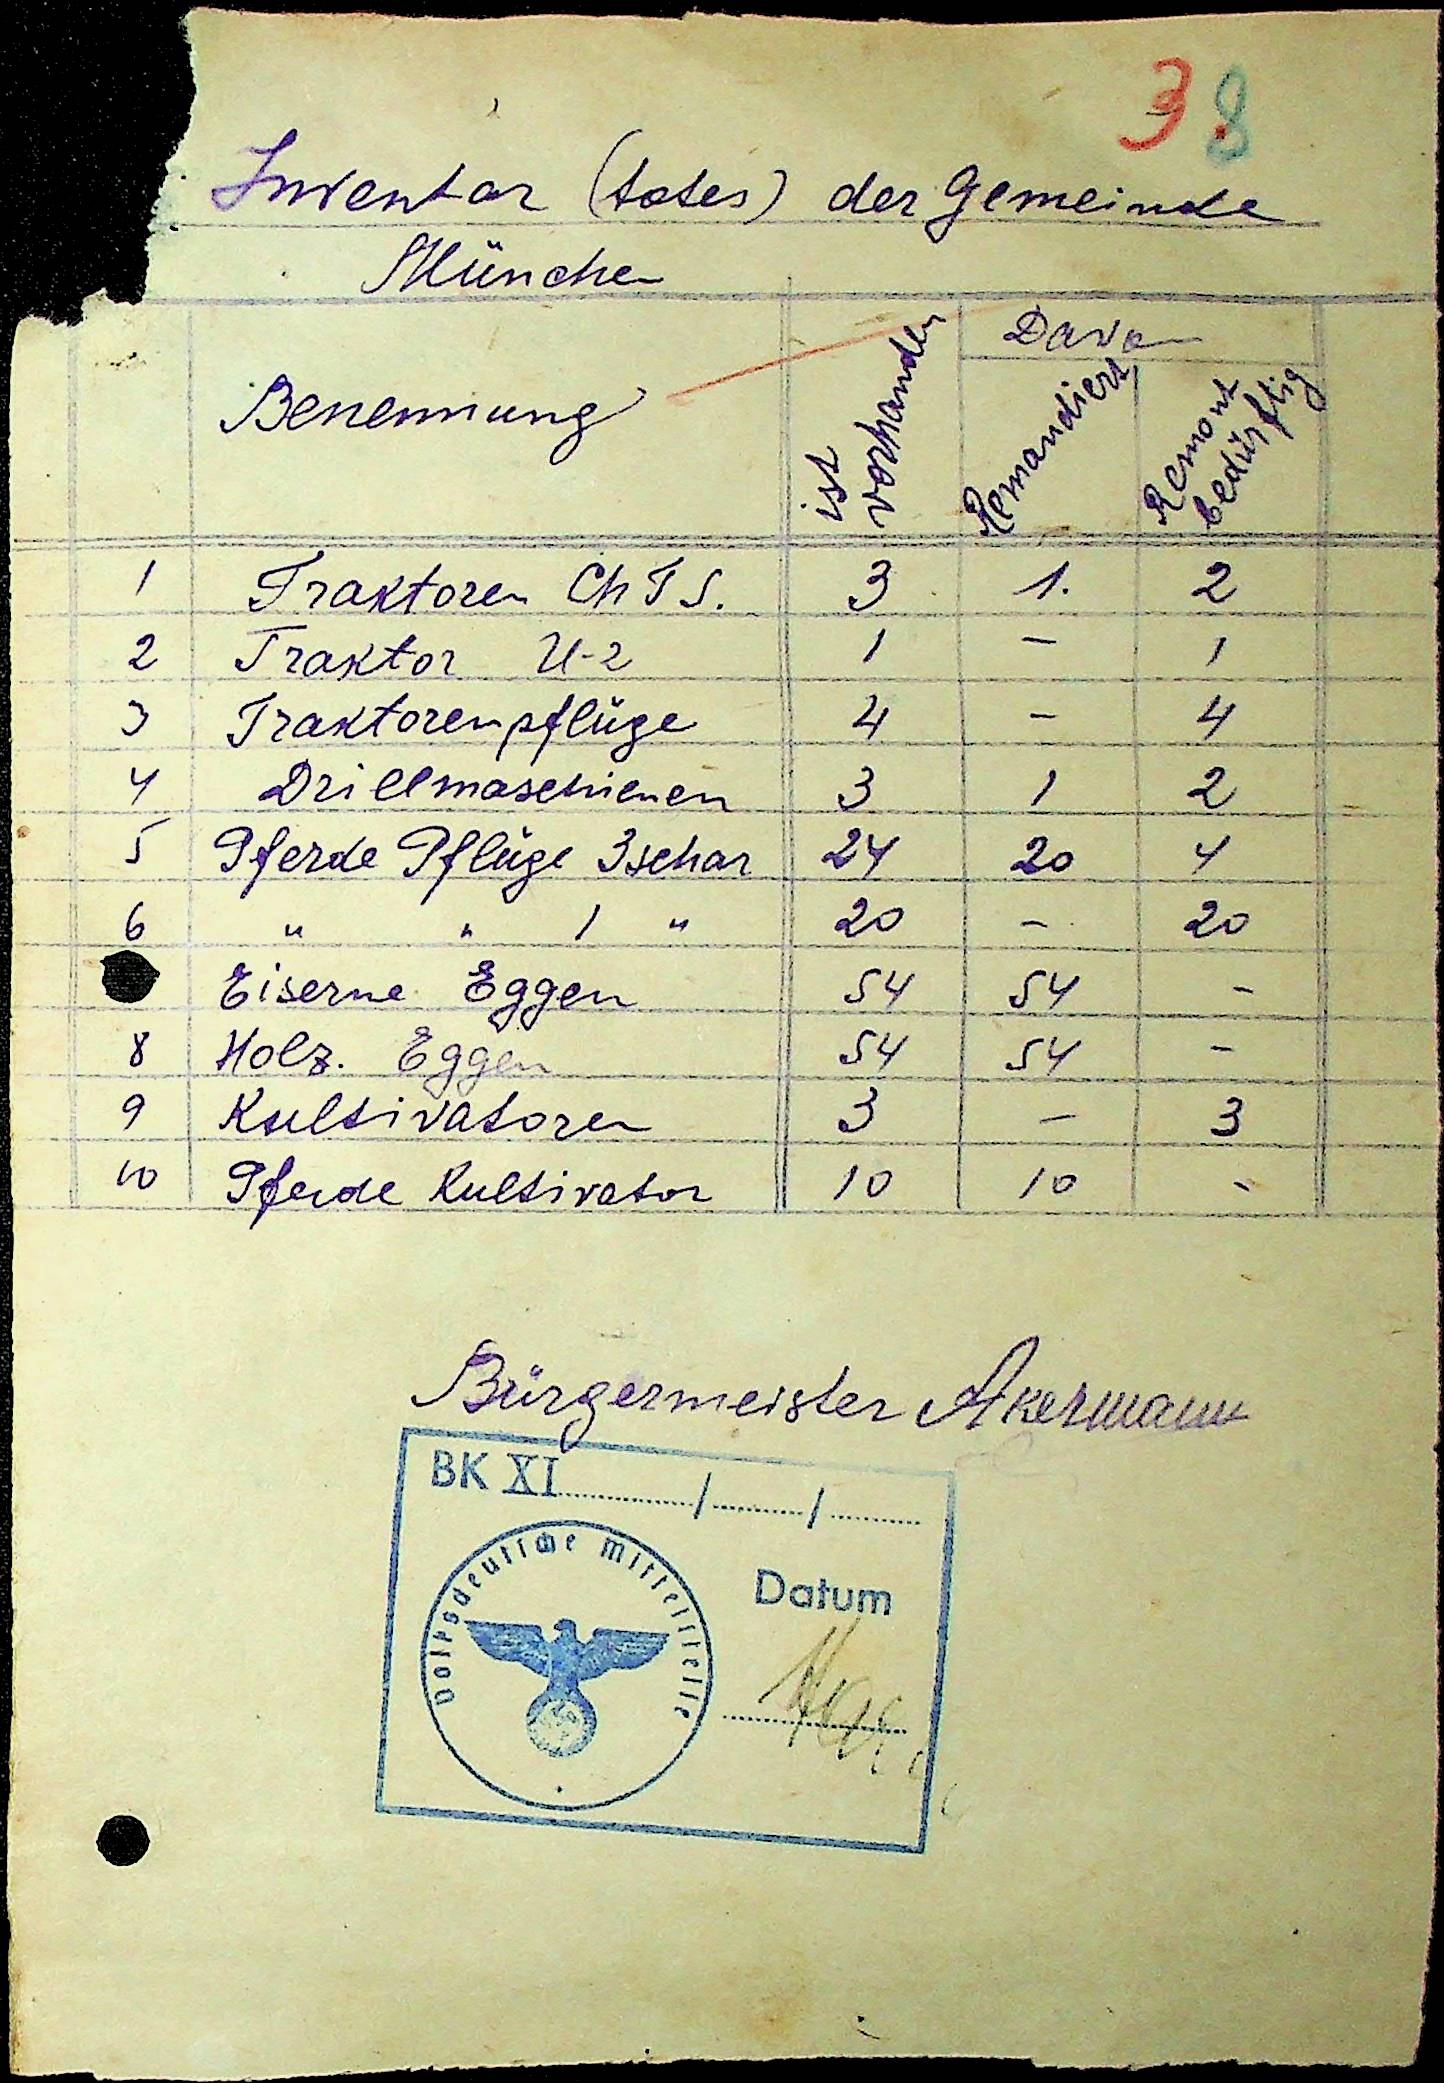 38
Inventar (totes) der Gemeinde
München
Benennung ist vorhanden Davon
Remandiert Remont bedürftig
1 Traktoren Ch T S. 3 1. 2
2 Traktor U-2 1 – 1
3 Traktorenpflüge 4 – 4
4 Drillmaschienen 3 1 2
5 Pferde Pflüge 3schar 24 20 4
6 " " 1 " 20 – 20
Eiserne Eggen 54 54 –
8 Holz. Eggen 54 54 –
9 Kultivatoren 3 – 3
10 Pferde Kultivator 10 10 -
Bürgermeister Akermann
BK XI ........../........../..........
Volksdeutsche Mittelstelle
Datum